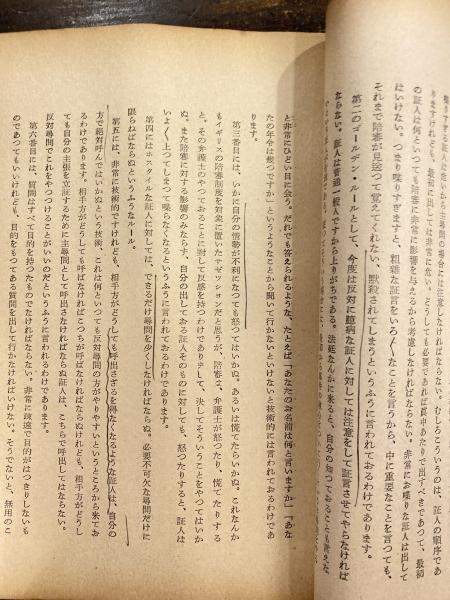 喋りすぎる証人に危いから主尋問の場合には注意しなければならない。むしろこういうのは、証人の順序であ
りますけれども、最初に出しては非常に危ない、どうしても必要であれば真中あたりで出すべきであつて、最初
の証人は何といつても陪審に非常に影響を与えるから考慮しなければならない。非常にお喋りな証人は出して
はいけない。つまり喋りすぎますと、粗雑な証言をいろ〱なことを言うから、中に重要なことを言つても、
それまで陪審が見送つて覚えてくれない、黙殺されてしまうというふうに言われておるわけであります。
第二のゴールデン・ルールとして、今度は反対に臆病な証人に対しては注意をして証言させてやらなければ
ならない。証人は普通一般人ですから上りがちである。法廷なんかに来ると、自分の知つておることも言えな
と非常にひどい目に会う。だれでも答えられるような、たとえば「あなたのお名前は何と言いますか」「あな
たの年令は幾つですか」というようなことから聞いて行かないといけないと技術的には言われておるわけであ
ります。
第三番目には、いかに自分の情勢が不利になつても怒つてはいかぬ。あるいは慌てたらいかぬ。これなんか
もイギリスの陪審制度を対象に置いたサゼッションだと思うが、陪審は、弁護士が怒つたり、慌てたりする
と、その弁護士のやつておることに対して反感を持つわけでありまして、決してそういうことをやつてはいか
ぬ。また陪審に対する影響のみならず、自分の出しておる証人そのものに対しても、怒つたりすると、証人は
いよ〱上つてしまつて喋らなくなるというふうに言われておるわけであります。
第四にはホスタイルな証人に対しては、できるだけ尋問を少くしなければならぬ。必要不可欠な尋問だけに
限らねばならないというふうなルール。
第五には、非常に技術的ですけれども、相手方がどうしても呼出さざるを得なくなるような証人は、自分の
方で絶対呼んではいかぬという技術、これは何といつても反対尋問の方がやりやすいというところから来てお
るわけであります。相手方がどうしても呼ばなければこつちが呼ばなければならぬけれども、相手方がどうし
ても自分の主張を立証するために主尋問として呼出さなければならぬ証人は、こちらで呼出してはならない。
反対尋問でこれをやつつけることがいいのだというふうに言われるわけであります。
第六番目には、質問はすべて目的を持つたものでなければならない。非常に疎遠で目的がはつきりしないも
のであつてもいいけれども、目的をもつてある質問を出して行かなければいけない。そうでないと、無用のこ